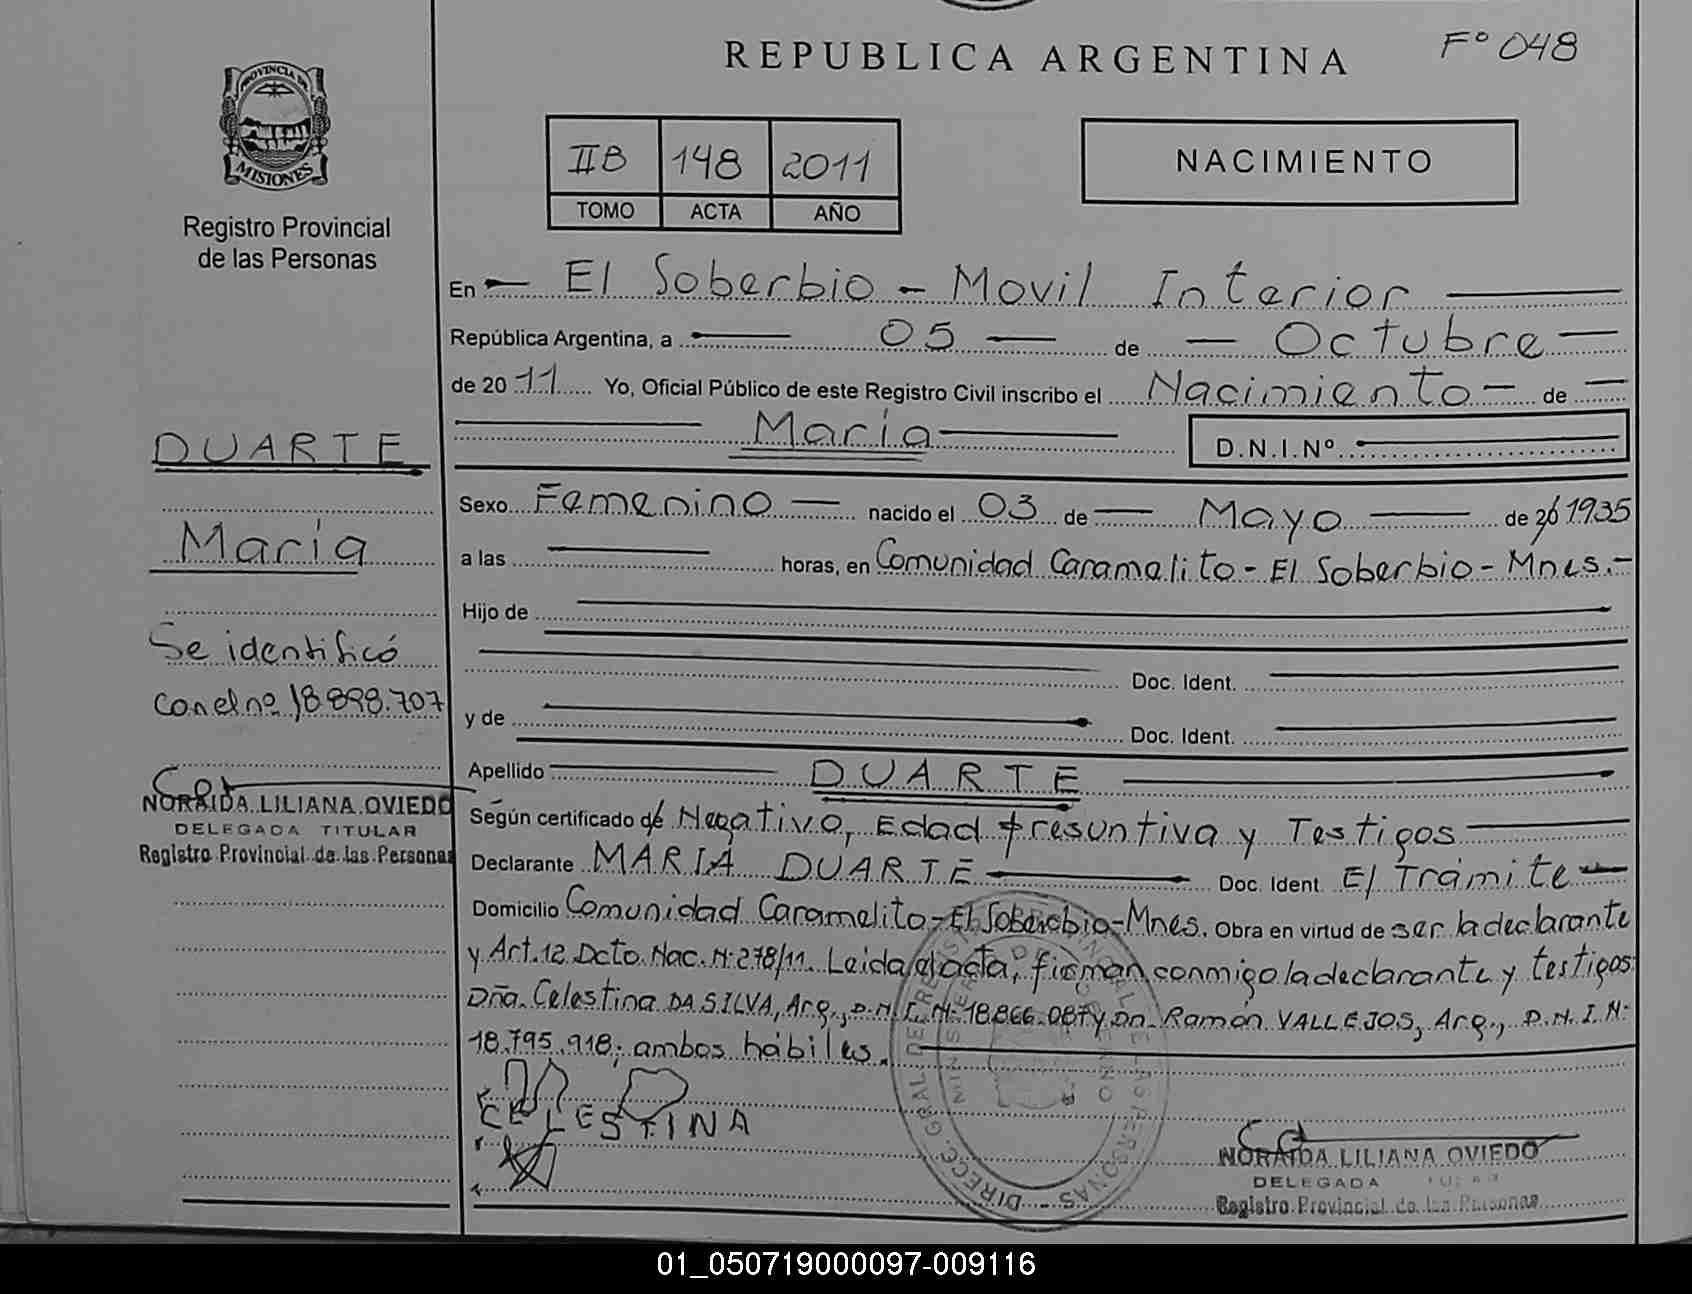 REPUBLICA ARGENTINA
Fº 048
PROVINCIA DE
MISIONES
Registro Provincial
de las Personas
IIB 148 2011
TOMO ACTA AÑO
NACIMIENTO
En El Soberbio - Movil Interior
República Argentina, a 05 de Octubre
de 2011 Yo, Oficial Público de este Registro Civil inscribo el Nacimiento de
María D.N.I.Nº
Sexo Femenino nacido el 03 de Mayo de 20 1935
a las horas, en Comunidad Caramelito - El Soberbio - Mnes.-
Hijo de
Doc. Ident.
y de
Doc. Ident.
Apellido DUARTE
Según certificado de Negativo, Edad Presuntiva y Testigos
Declarante MARIA DUARTE Doc. Ident. El Trámite
Domicilio Comunidad Caramelito - El Soberbio - Mnes. Obra en virtud de ser la declarante
y Art. 12 Dcto. Nac. N: 278/11. Leida el acta, firman conmigo la declarante y testigos
Dña. Celestina DA SILVA, Arg., D.N.I. N: 18.866.087 y Dn. Ramón VALLEJOS, Arg., D.N.I. N:
18.795.918; ambos hábiles.
CELESTINA
NORAIDA LILIANA OVIEDO
DELEGADA
Registro Provincial de las Personas
DUARTE
María
Se identificó
con el nº 18.898.707
NORAIDA LILIANA OVIEDO
DELEGADA TITULAR
Registro Provincial de las Personas
01_050719000097-009116